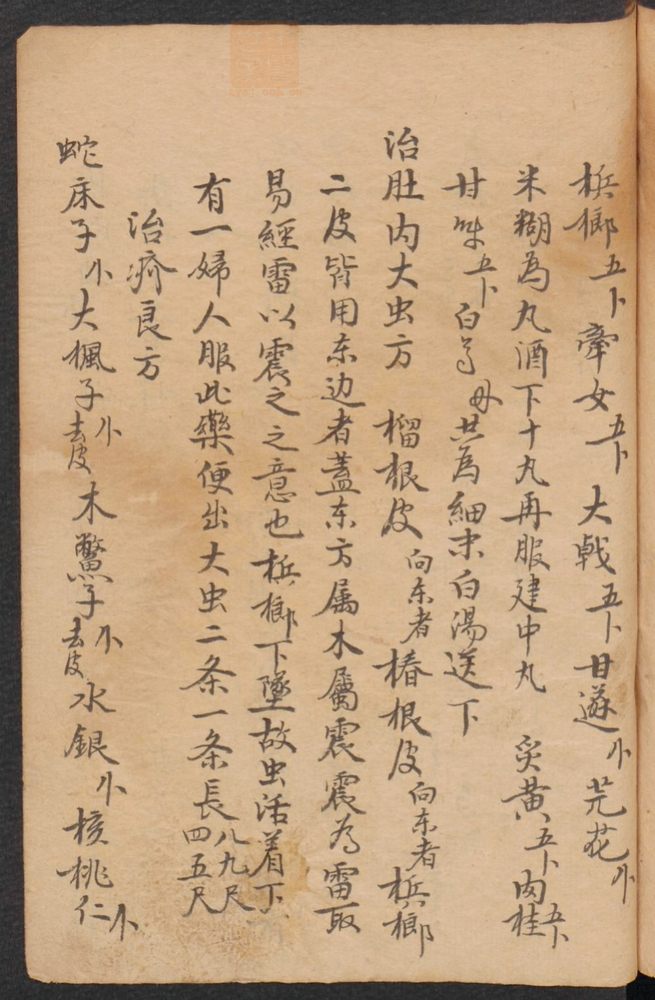 梹榔五卜牽女五卜大戟五卜甘遂小芫花小
米糊為丸酒下十丸再服建中丸 炙黄五卜肉桂五卜
甘草五卜白芍 共為細末白湯送下
治肚内大虫方 榴根皮向东者椿根皮向东者梹榔
二皮皆用东边者蓋东方属木属震震為雷取
易經雷以震之之意也梹榔下墜故虫活着下
有一婦人服此藥便出大虫二条一条長八九尺四五尺
治疥良方
蛇床子小大楓子小去皮木鱉子小去皮水銀小核桃仁小